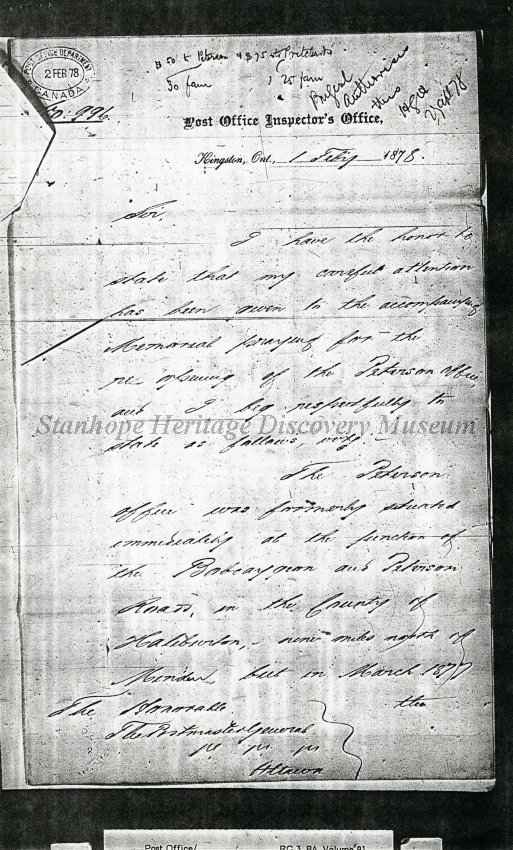 POST OFFICE DEPARTMENT
2 FEB 78
CANADA
No: 996.
$50 to Peterson & $75 to Pritchards
50 fawn
25 fawn
this
Post Office Inspector's Office,
Kingston, Ont., 1 Feby 1878.
Sir,
I have the honor to
state that my careful attention
has been given to the accompanying
Memorial praying for the
re-opening of the Peterson Office,
and I beg respectfully to
Stanhope Heritage Discovery Museum
state as follows, vizt:-
The Peterson
office was formerly situated
immediately at the junction of
the Bobcaygeon and Peterson
Roads, in the County of
Haliburton, - nine miles north of
Minden, but in March 1877
the
The Honorable
The Postmaster General
Ottawa
Post Office/
RG 3, BA, Volume 91